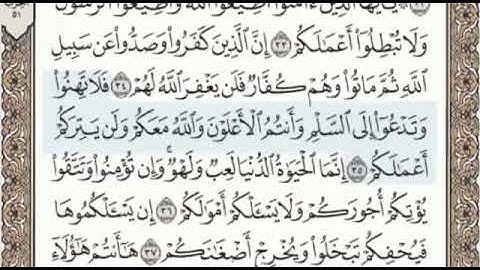 يَٰٓأَيُّهَا ٱلَّذِينَ ءَامَنُوٓا۟ أَطِيعُوا۟ ٱللَّهَ وَأَطِيعُوا۟ ٱلرَّسُولَ
وَلَا تُبْطِلُوٓا۟ أَعْمَٰلَكُمْ ٣٣ إِنَّ ٱلَّذِينَ كَفَرُوا۟ وَصَدُّوا۟ عَن سَبِيلِ
ٱللَّهِ ثُمَّ مَاتُوا۟ وَهُمْ كُفَّارٌ فَلَن يَغْفِرَ ٱللَّهُ لَهُمْ ٣٤ فَلَا تَهِنُوا۟
وَتَدْعُوٓا۟ إِلَى ٱلسَّلْمِ وَأَنتُمُ ٱلْأَعْلَوْنَ وَٱللَّهُ مَعَكُمْ وَلَن يَتِرَكُمْ
أَعْمَٰلَكُمْ ٣٥ إِنَّمَا ٱلْحَيَوٰةُ ٱلدُّنْيَا لَعِبٌ وَلَهْوٌ ۚ وَإِن تُؤْمِنُوا۟ وَتَتَّقُوا۟
يُؤْتِكُمْ أُجُورَكُمْ وَلَا يَسْـَٔلْكُمْ أَمْوَٰلَكُمْ ٣٦ إِن يَسْـَٔلْكُمُوهَا
فَيُحْفِكُمْ تَبْخَلُوا۟ وَيُخْرِجْ أَضْغَٰنَكُمْ ٣٧ هَٰٓأَنتُمْ هَٰٓؤُلَآءِ
٥١